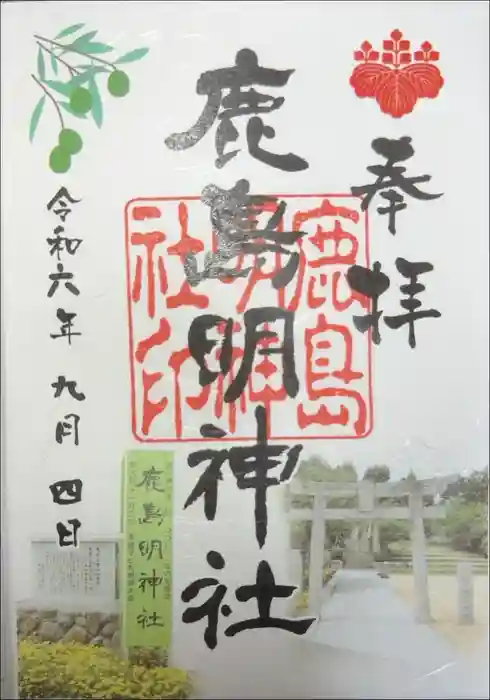 奉拝
鹿島明神社
鹿島
明神
社印
令和六年 九月 四日
鹿島明神社